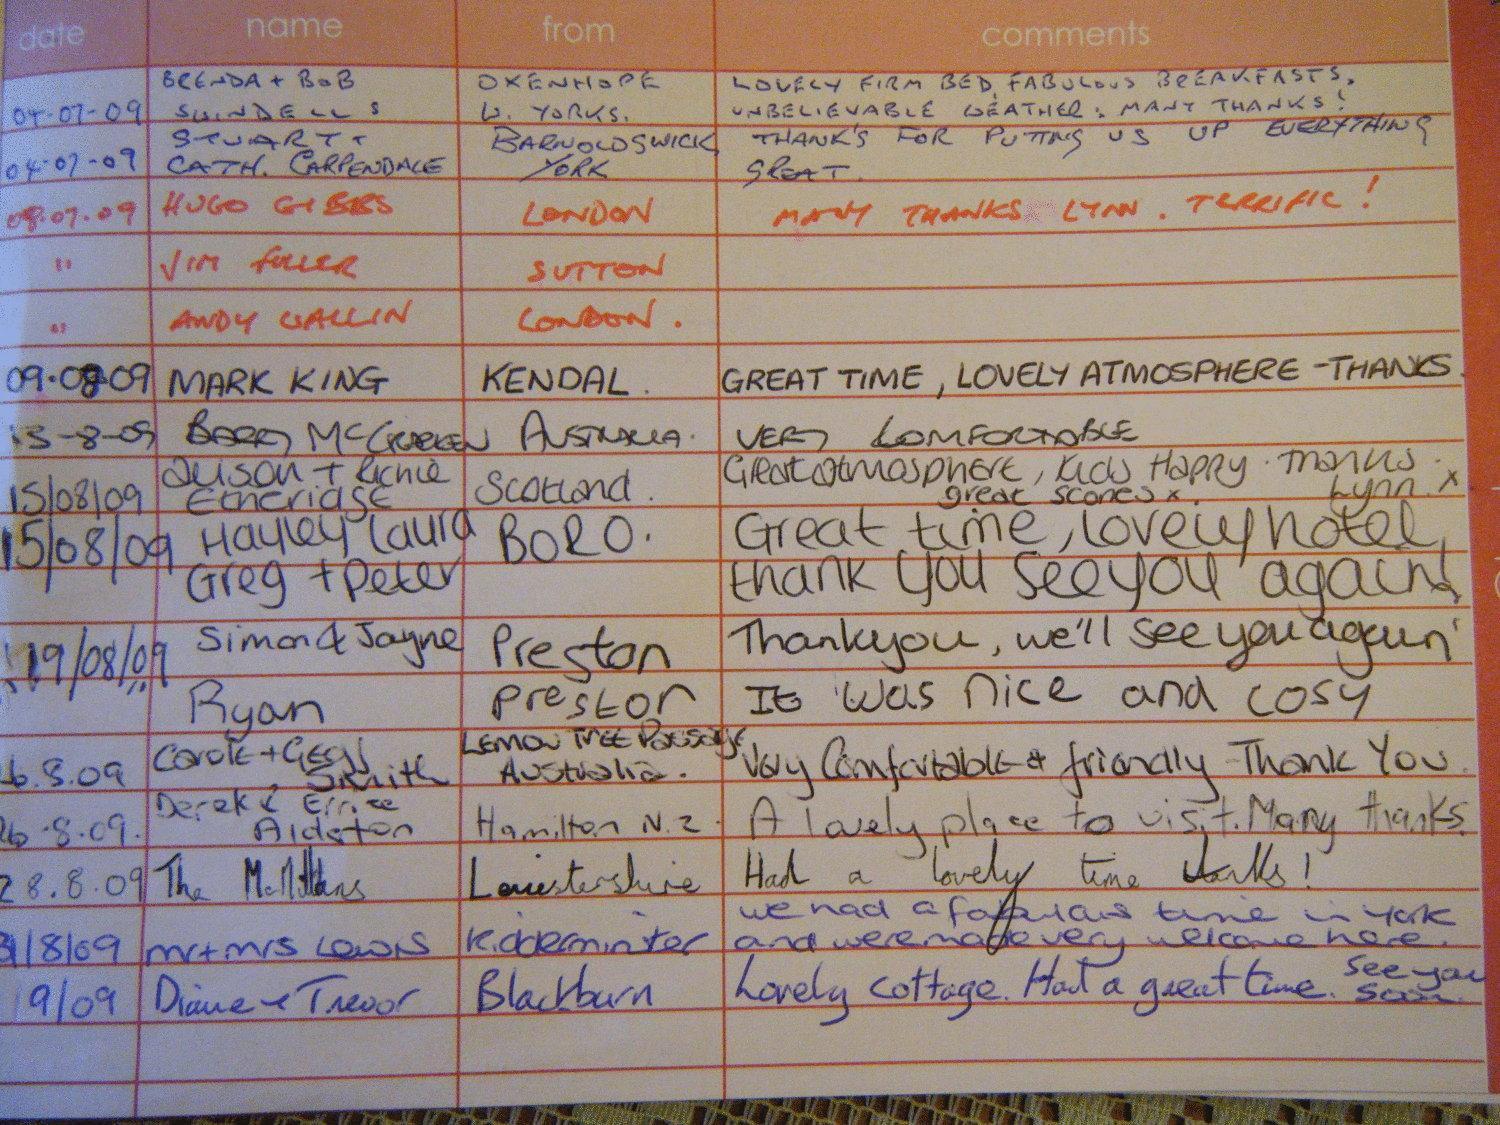 date name from comments
BRENDA + BOB OXENHOPE LOVELY FIRM BED, FABULOUS BREAKFASTS,
04-07-09 SWINDELLS W. YORKS. UNBELIEVABLE WEATHER. MANY THANKS!
STUART + BARNOLDSWICK, THANK'S FOR PUTTING US UP EVERYTHING
04-07-09 CATH. CARPENDALE YORK GREAT.
08.07.09 HUGO GIBBS LONDON MANY THANKS LYNN. TERRIFIC!
" JIM FULLER SUTTON
" ANDY WALLIN LONDON.
09.08.09 MARK KING KENDAL. GREAT TIME, LOVELY ATMOSPHERE - THANKS.
13-8-09 BARRY McCRACKEN AUSTRALIA. VERY COMFORTABLE
Alison + Richie Great atmosphere, Kids Happy. Thanks
15/08/09 Etheridge Scotland. great scones x. Lynn. x
15/08/09 Hayley Laura BORO. Great time, lovely hotel,
Greg + Peter thank you see you again!
19/08/09 Simon & Jayne Preston Thankyou, we'll see you again'
Ryan Preston It was nice and cosy
Carole + Gerry LEMON TREE Passage
6.8.09 Smith Australia. Very Comfortable & friendly - Thank You.
Derek &
26.8.09. Hamilton N.Z. A lovely place to visit. Many thanks.
28.8.09 The McMillans Leicestershire Had a lovely time thanks!
we had a fabulous time in York
31/8/09 mr + mrs Lewis Kidderminster and were made very welcome here.
9/09 Diane & Trevor Blackburn Lovely cottage. Had a great time. See you
soon.